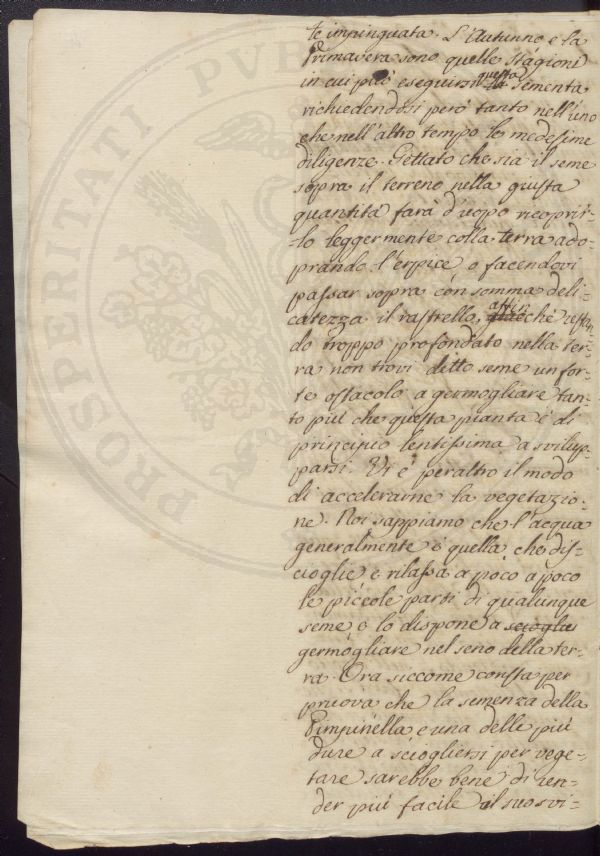 te impinguata. L'Autunno e la
Primavera sono quelle stagioni
in cui può eseguirsi questa sementa
richiedendosi però tanto nell'uno
che nell'altro tempo le medesime
diligenze. Gettato che sia il seme
sopra il terreno nella giusta
quantità farà d'uopo ricoprir-
-lo leggermente colla terra ado-
prando l'erpice, o facendovi
passar sopra con somma deli-
catezza il rastrello, affinché restan-
do troppo profondato nella ter-
ra non trovi ditto seme un for-
te ostacolo a germogliare tan-
to più che questa pianta è di
principio lentissima a svilup-
parsi. Vi è peraltro il modo
di accelerarne la vegetazio-
ne. Noi sappiamo che l'acqua
generalmente è quella che dis-
cioglie e rilassa a poco a poco
le piccole parti di qualunque
seme e lo dispone a scioglie
germogliare nel seno della ter-
ra. Ora siccome consta per
pruova che la semenza della
Pimpinella e una delle più
dure a sciogliersi per vege-
tare sarebbe bene di ren-
der più facile il suo svi-
PROSPERITATI PVB